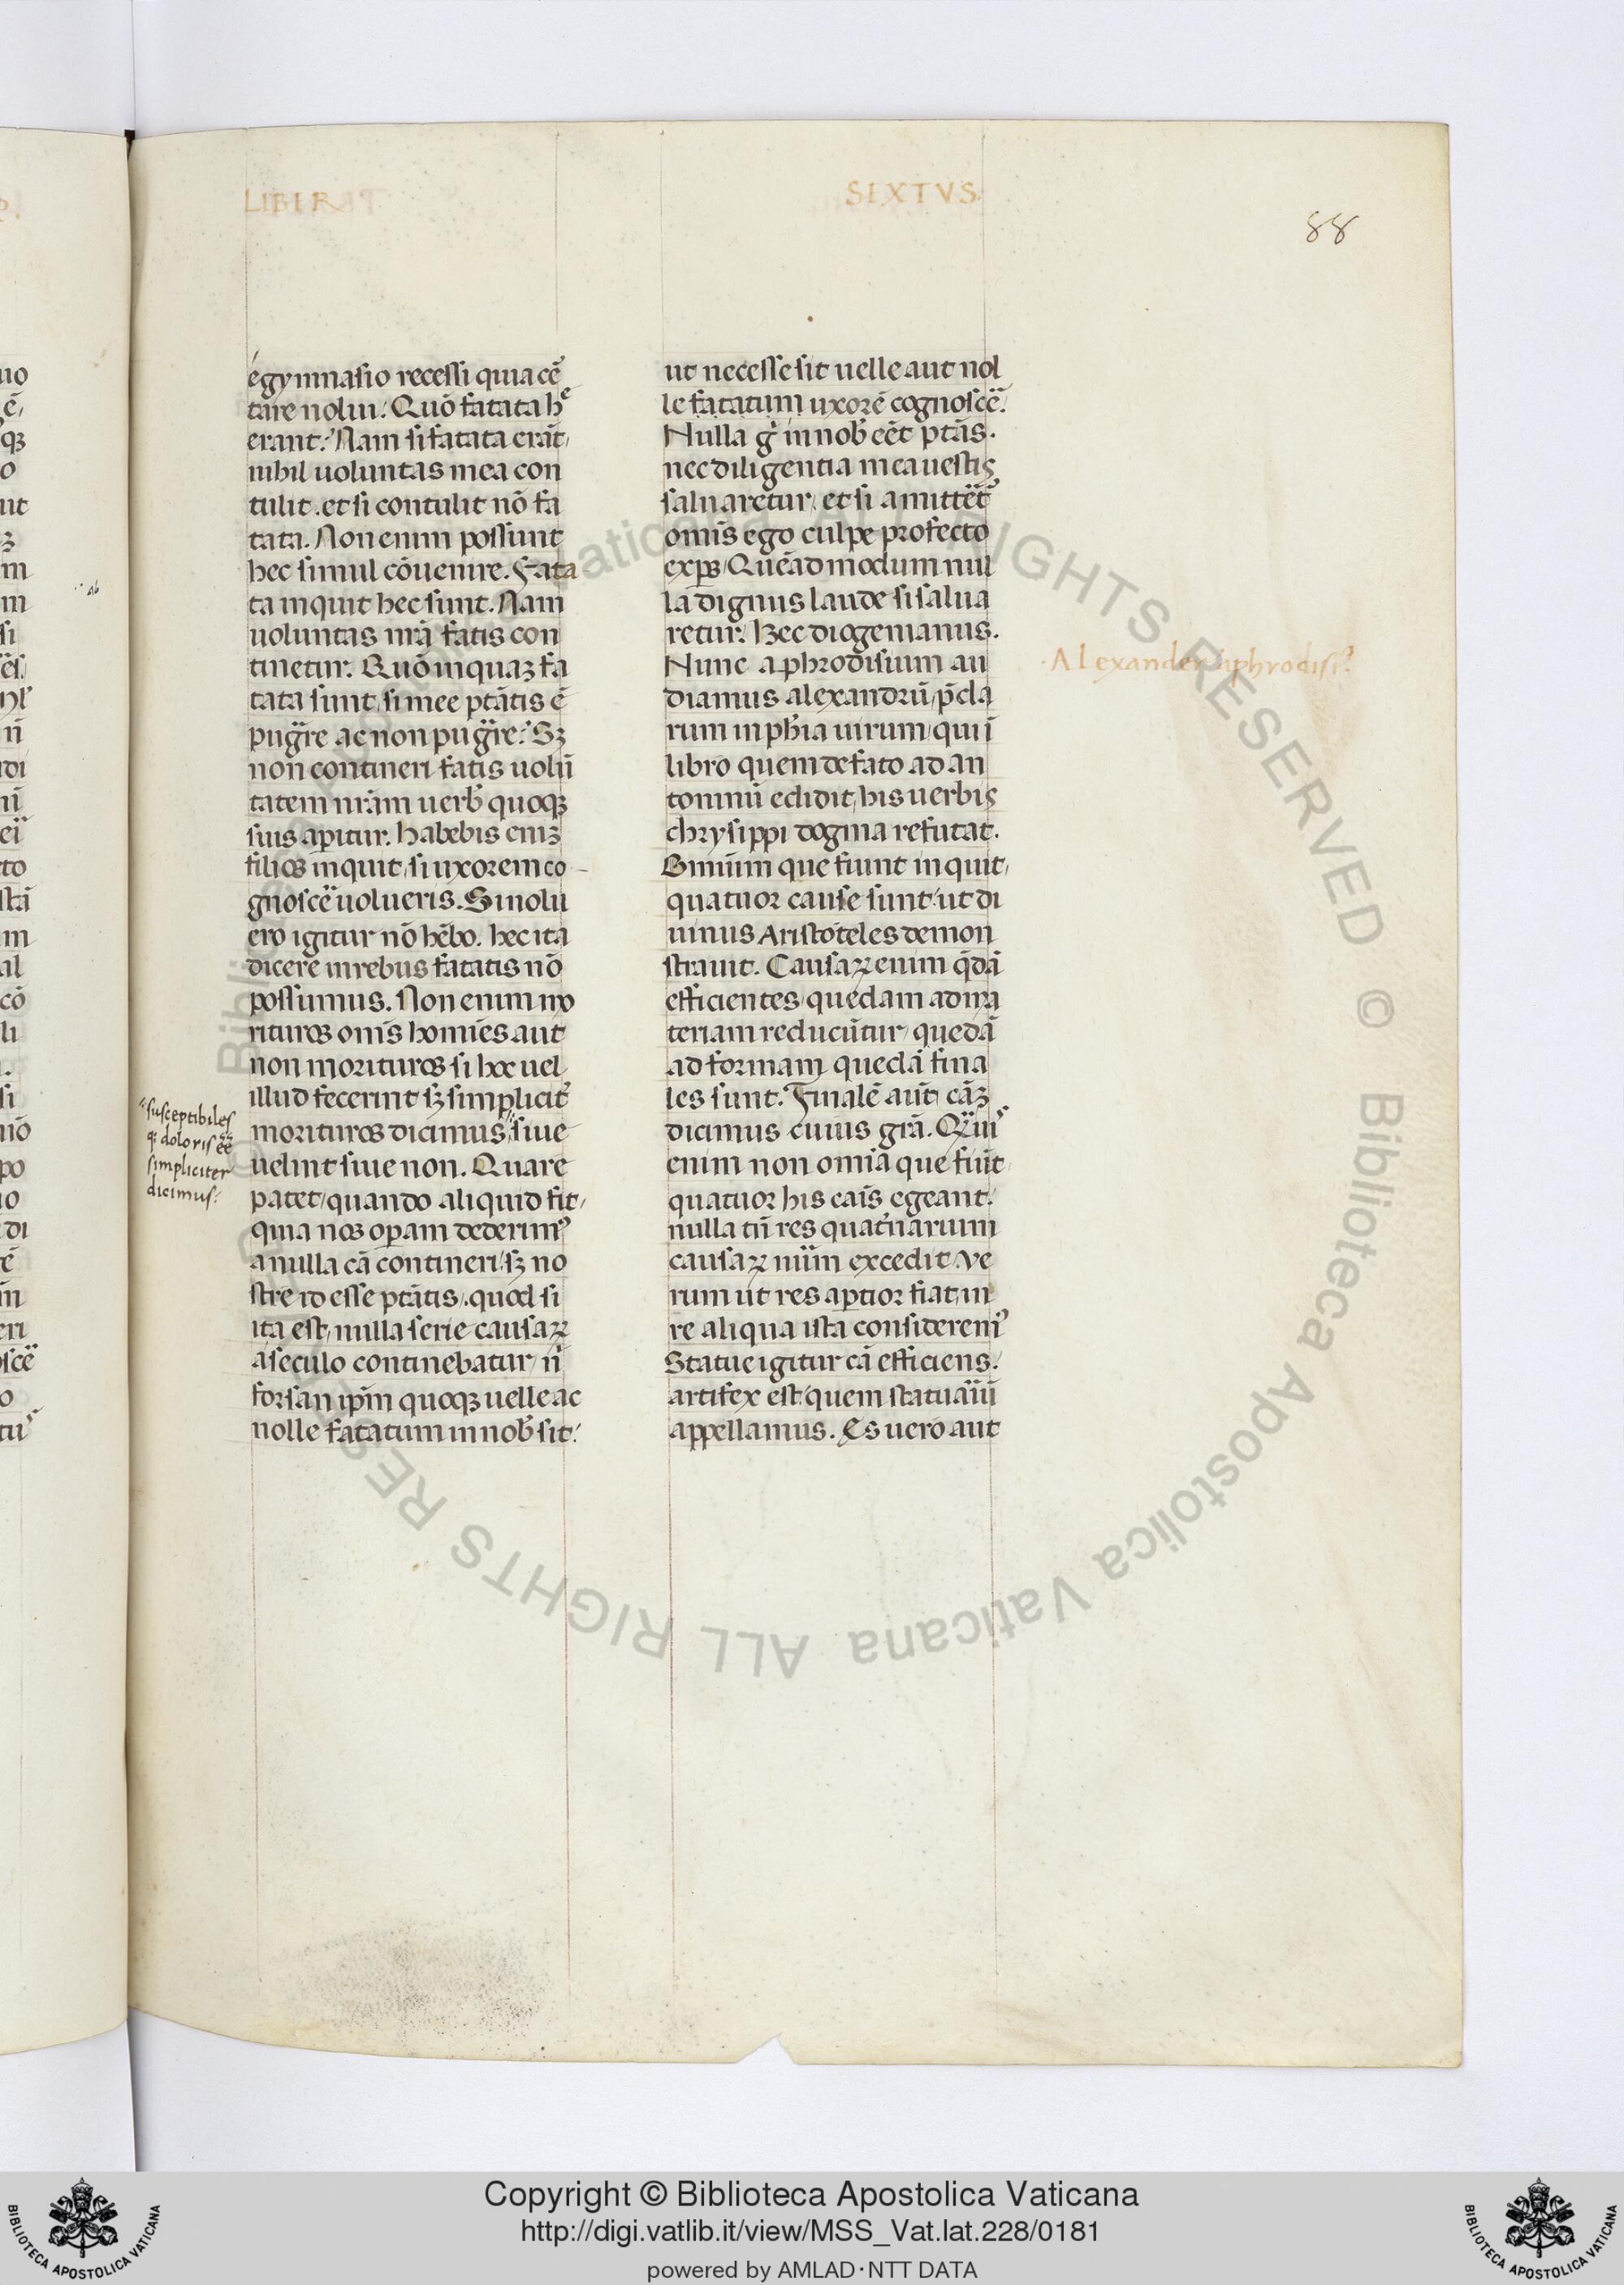 LIBER
SIXTVS.
88
egymnasio recessi quia cẽ
tare nolui. Quõ fatata hͤ
erant? Nam si fatata erãt
nihil uoluntas mea con
tulit. et si contulit nõ fa
tata. Non enim possunt
hec simul cõuenire. Fata
ta inquit hec sunt. Nam
uoluntas nr̃a fatis con
tinetur. Quõ inquaꝫ fa
tata sunt, si mee ptãtis ẽ
pug̈re ac non pug̈re? Sꝫ
non contineri fatis uolũ
tatem nr̃am uerb̾ quoqꝫ
suis aꝑitur. Habebis eniꝫ
filios inquit, si uxorem co-
gnosce̎ uolueris. Si nolu
ero igitur nõ hẽbo. hec ita
dicere in rebus fatatis nõ
possumus. Non enim mo
rituros om̃s homĩes aut
non morituros si hoc uel
illud fecerint sꝫ simplicit᷑
morituros dicimus, siue
uelint siue non. Quare
patet, quando aliquid fit,
quia nos oꝑam dederimꝰ
a nulla cã contineri, sꝫ no
stre id esse ptãtis. quod si
ita est, nulla serie causaꝝ
a seculo continebatur, ñ
forsan ip̃m quoqꝫ uelle ac
nolle fatatum in nob̾ sit.
susceptibiles
qꝫ doloris eẽ
simpliciter
dicimus.
ut necesse sit uelle aut nol
le fatatum uxorẽ cognosce̎.
Nulla gͥ in nob̾ eẽt ptãs.
nec diligentia mea uestis
saluaretur, et si amitte̎t᷑
om̃is ego culpe profecto
exꝑs, Quẽadmodum nul
la dignus laude si salua
retur. Hec diogenianus.
Nunc aphrodisium au
diamus alexandrũ, p̃cla
rum in ph̃ia uirum, qui ĩ
libro quem de fato ad an
toninũ edidit, his uerbis
chrysippi dogma refutat.
Omnium que fiunt inquit,
quatuor cause sunt, ut di
uinus Aristoteles demon
strauit. Causaꝝ enim q̃dã
efficientes, quedam ad ma
teriam reducũtur, quedã
ad formam, quedã fina
les sunt. Finalẽ aũt cãꝫ
dicimus cuius gr̃a. Q̈uis
enim non om̃ia que fiũt,
quatuor his cais̃ egeant.
nulla tñ res quat᷑narium
causaꝝ num̃ excedit. Ve
rum ut res aꝑtior fiat, in
re aliqua ista consideremꝰ
Statue igitur cã efficiens.
artifex est, quem statuãiũ
appellamus. Es uero aut
Alexander aphrodisiꝰ.
Copyright © Biblioteca Apostolica Vaticana
http://digi.vatlib.it/view/MSS_Vat.lat.228/0181
powered by AMLAD·NTT DATA
BIBLIOTECA APOSTOLICA VATICANA
BIBLIOTECA APOSTOLICA VATICANA
© Biblioteca Apostolica Vaticana ALL RIGHTS RESERVED
© Biblioteca Apostolica Vaticana ALL RIGHTS RESERVED